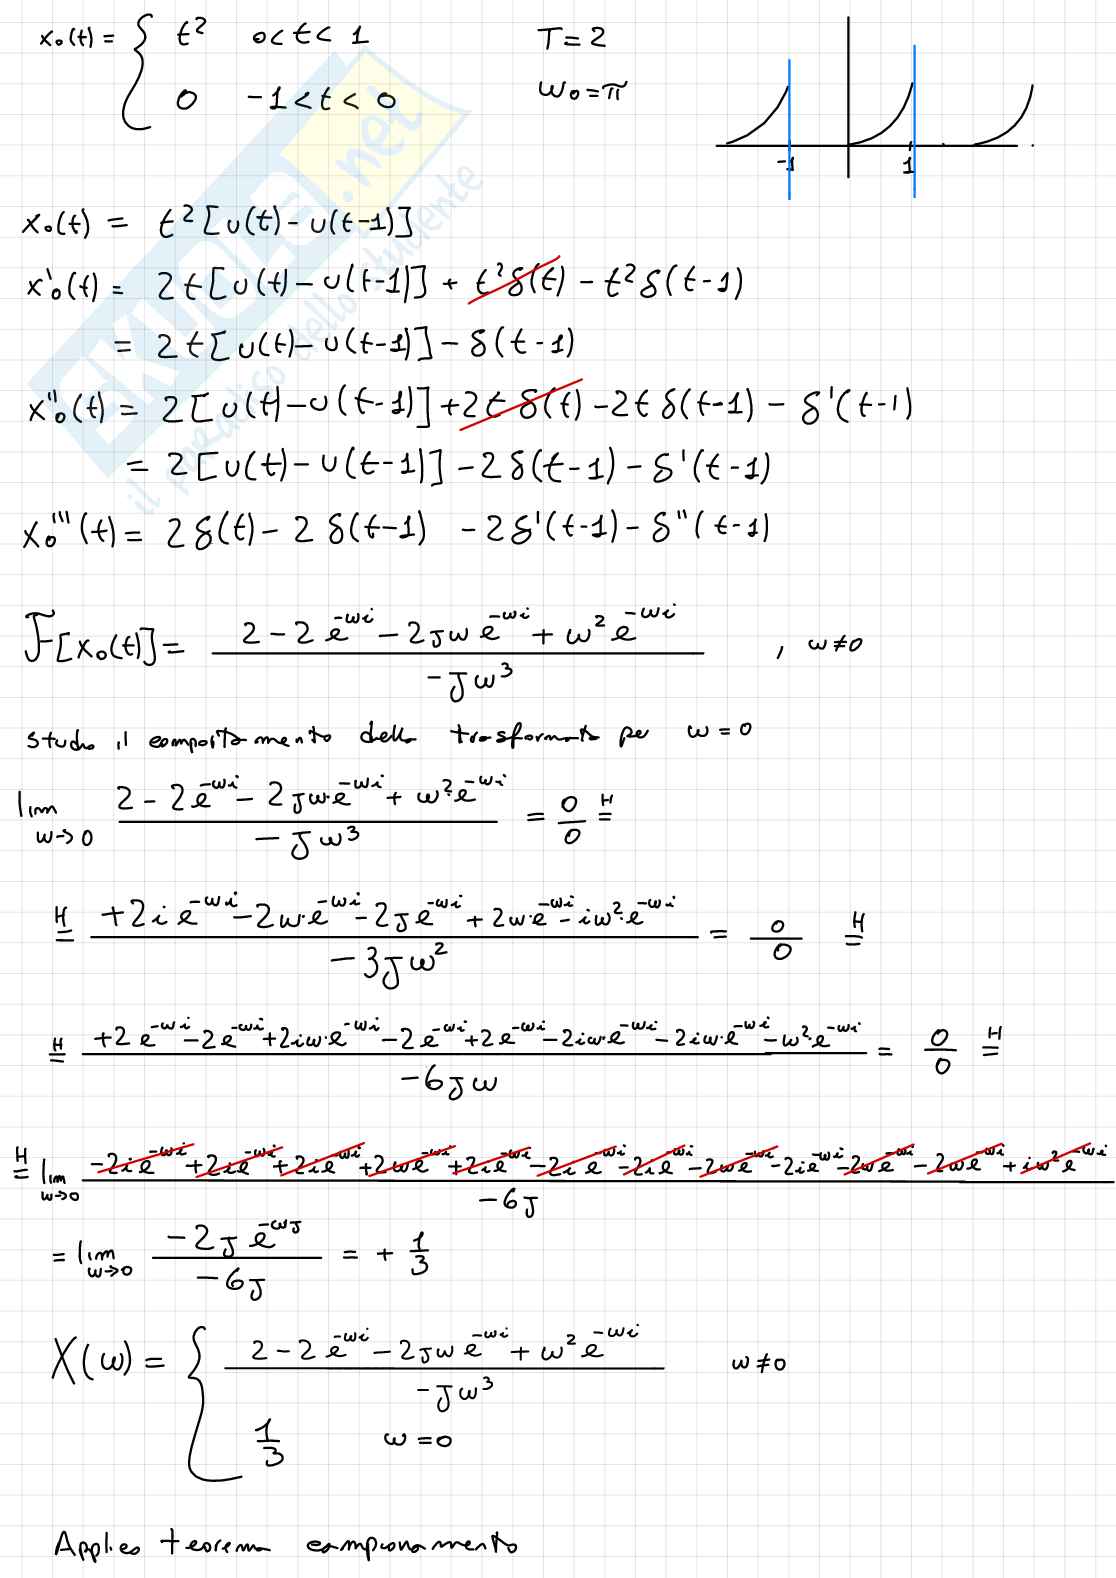 x₀(t) = { t² 0<t<1 T=2
0 -1<t<0 ω₀=π
-1 1
x₀(t) = t²[u(t)-u(t-1)]
x₀'(t) = 2t[u(t)-u(t-1)] + t²δ(t) - t²δ(t-1)
= 2t[u(t)-u(t-1)] - δ(t-1)
x₀''(t) = 2[u(t)-u(t-1)] + 2t δ(t) - 2t δ(t-1) - δ'(t-1)
= 2[u(t)-u(t-1)] - 2δ(t-1) - δ'(t-1)
x₀'''(t) = 2δ(t) - 2δ(t-1) - 2δ'(t-1) - δ''(t-1)
F[x₀(t)] = (2 - 2e^{-ωi} - 2jω e^{-ωi} + ω² e^{-ωi}) / (-jω³) , ω≠0
Studio il comportamento della trasformata per ω=0
lim ω→0 (2 - 2e^{-ωi} - 2jω·e^{-ωi} + ω²·e^{-ωi}) / (-jω³) = 0/0 =^H
=^H (+2i e^{-ωi} - 2ω·e^{-ωi} - 2j e^{-ωi} + 2ω·e^{-ωi} - iω²·e^{-ωi}) / (-3jω²) = 0/0 =^H
=^H (+2e^{-ωi} - 2e^{-ωi} + 2iω·e^{-ωi} - 2e^{-ωi} + 2e^{-ωi} - 2iω·e^{-ωi} - 2iω·e^{-ωi} - ω²·e^{-ωi}) / (-6jω) = 0/0 =^H
=^H lim ω→0 (-2ie^{-ωi} + 2ie^{-ωi} + 2ie^{-ωi} + 2ωe^{-ωi} + 2ie^{-ωi} - 2ie^{-ωi} - 2ie^{-ωi} - 2ωe^{-ωi} - 2ie^{-ωi} - 2ωe^{-ωi} - 2ωe^{-ωi} + iω²e^{-ωi}) / (-6j)
= lim ω→0 (-2j e^{-ωj}) / (-6j) = + 1/3
X(ω) = { (2 - 2e^{-ωi} - 2jω e^{-ωi} + ω² e^{-ωi}) / (-jω³) ω≠0
1/3 ω=0
Applico teorema campionamento
SKUOLA.net
il paradiso dello studente